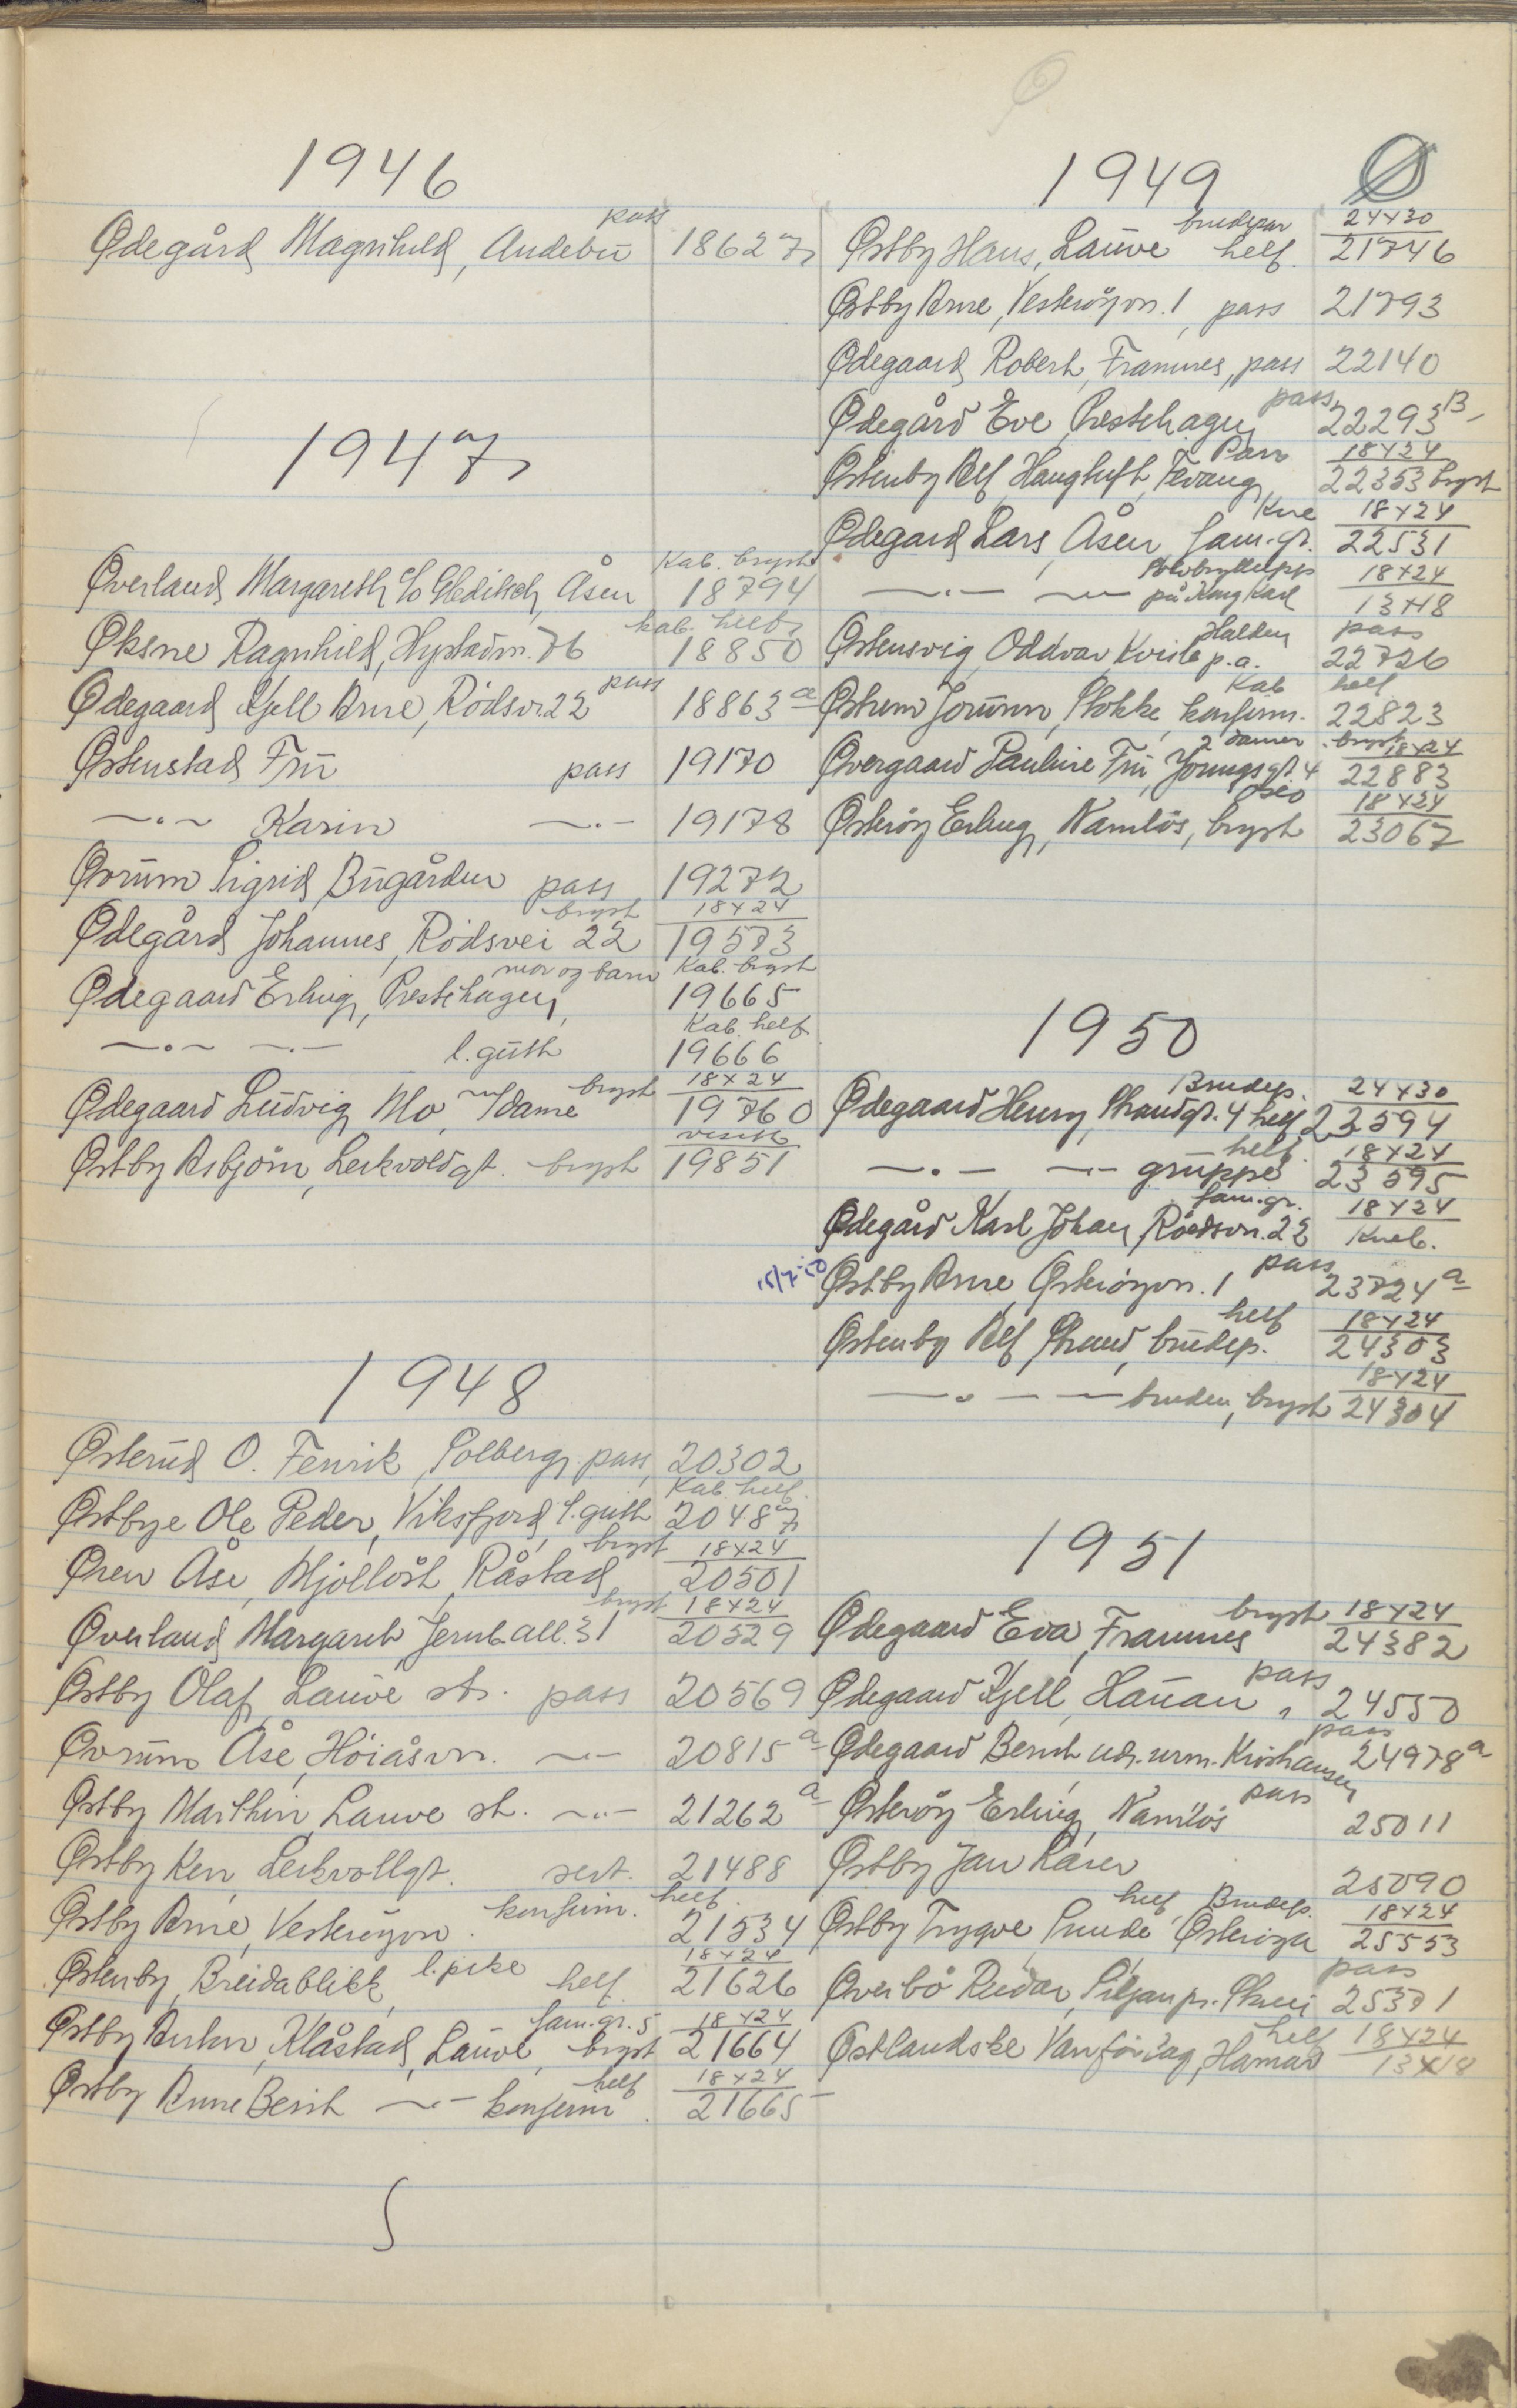 1946
pass
Ødegård Magnhild, Andebu 18627
1947
Kab. bryst
Øverland Margareth c/o Gleditsch, Åsen 18794
kab. helf
Øksne Ragnhild, Hystadv. 76 18850
pass
Ødegaard Kjell Arne, Rödsv. 22 18863 a
Østenstad Frü pass 19170
—〃— Karin —〃— 19178
Øvrüm Sigrid, Bügården pass 19272
bryst 18x24
Ødegård Johannes, Rödsvei 22 19573
mor og barn Kab. bryst
Ødegaard Erling, Prestehagen, 19665
Kab. helf
—〃— —〃— l. gütt 19666
bryst 18x24
Ødegaard Lüdvig, Mo, m/dame 19760
visitt
Østby Asbjörn, Leikvoldgt. bryst 19851
1948
Österüd O. Fenrik, Solberg, pass, 20302
Kab. helf.
Østbye Ole Peder, Viksfjord, l. gütt 20487
bryst 18x24
Øren Åse, Mjöllöst, Råstad, 20501
bryst 18x24
Øverland Margareth, Jernb.all. 31 20529
Østby Olaf, Lauve st. pass 20569
Øvrüm Åse, Höiåsvn. —〃— 20815 a
Østby Marthin, Lauve st. —〃— 21262 a
Østby Ken, Leikvollgt. sert. 21488
konfirm. helf.
Østby Arne, Vesteröyvn. 21534
l. pike 18x24
Østenby, Breidablikk, helf. 21626
fam.gr. 5 18x24
Østby Anton, Klåstad, Lauve, bryst 21664
helf 18x24
Østby Anne Berit —〃— konfirm. 21665
1949 Ø
brudepar 24x30
Østby Hans, Lauve helf. 21746
Østby Arne, Vesteröyvn. 1, pass 21793
Ødegaard, Robert, Framnes, pass 22140
pass
Ødegård Eve, Prestehagen 22293 B
Pass 18x24
Østenby Alf, Haugtuft, Tevang, 22353 bryst
Kne 18x24
Ødegard Lars, Åsen, fam.gr. 22531
Sölvbryllupp 18x24
—〃— —〃— på Kong Karl 13x18
Halden pass
Østensvig, Oddvar Kvisle p.a. 22726
Kab helf
Østrem Jorünn, Stokke, konfirm. 22823
2 damer bryst 18x24
Øvergaard Pauline Frü, Youngsgt. 4 22883
Oslo 18x24
Österöy Erling, Namlös, bryst 23067
1950
Brudep. 24x30
Ødegaard Henry, Strandgt. 4 helf 23594
helf. 18x24
—〃— —〃— grüppe 23595
fam.gr. 18x24
Ødegård Karl Johan, Rödsvn. 22 Kneb.
15/7-50 pass
Østby Arne, Österöyvn. 1 23724 a
helf 18x24
Østenby Alf, Strand, brüdep. 24303
18x24
—〃— — bruden, bryst 24304
1951
bryst 18x24
Ødegaard Eva, Framnes 24382
pass
Ødegaard Kjell, Hauan, 24550
pass
Ødegaard Bernt urm. Kristiansen 24978 a
pass
Österöy Erling, Namlös 25011
Østby Jan Kåre 25090
helf, Brudep. 18x24
Østby Trygve, Sunde Österöya 25553
pass
Øverbö Reidar, Siljan pr. Skien 25371
helf 18x24
Østlandske Vanförelag, Hamar 13x18